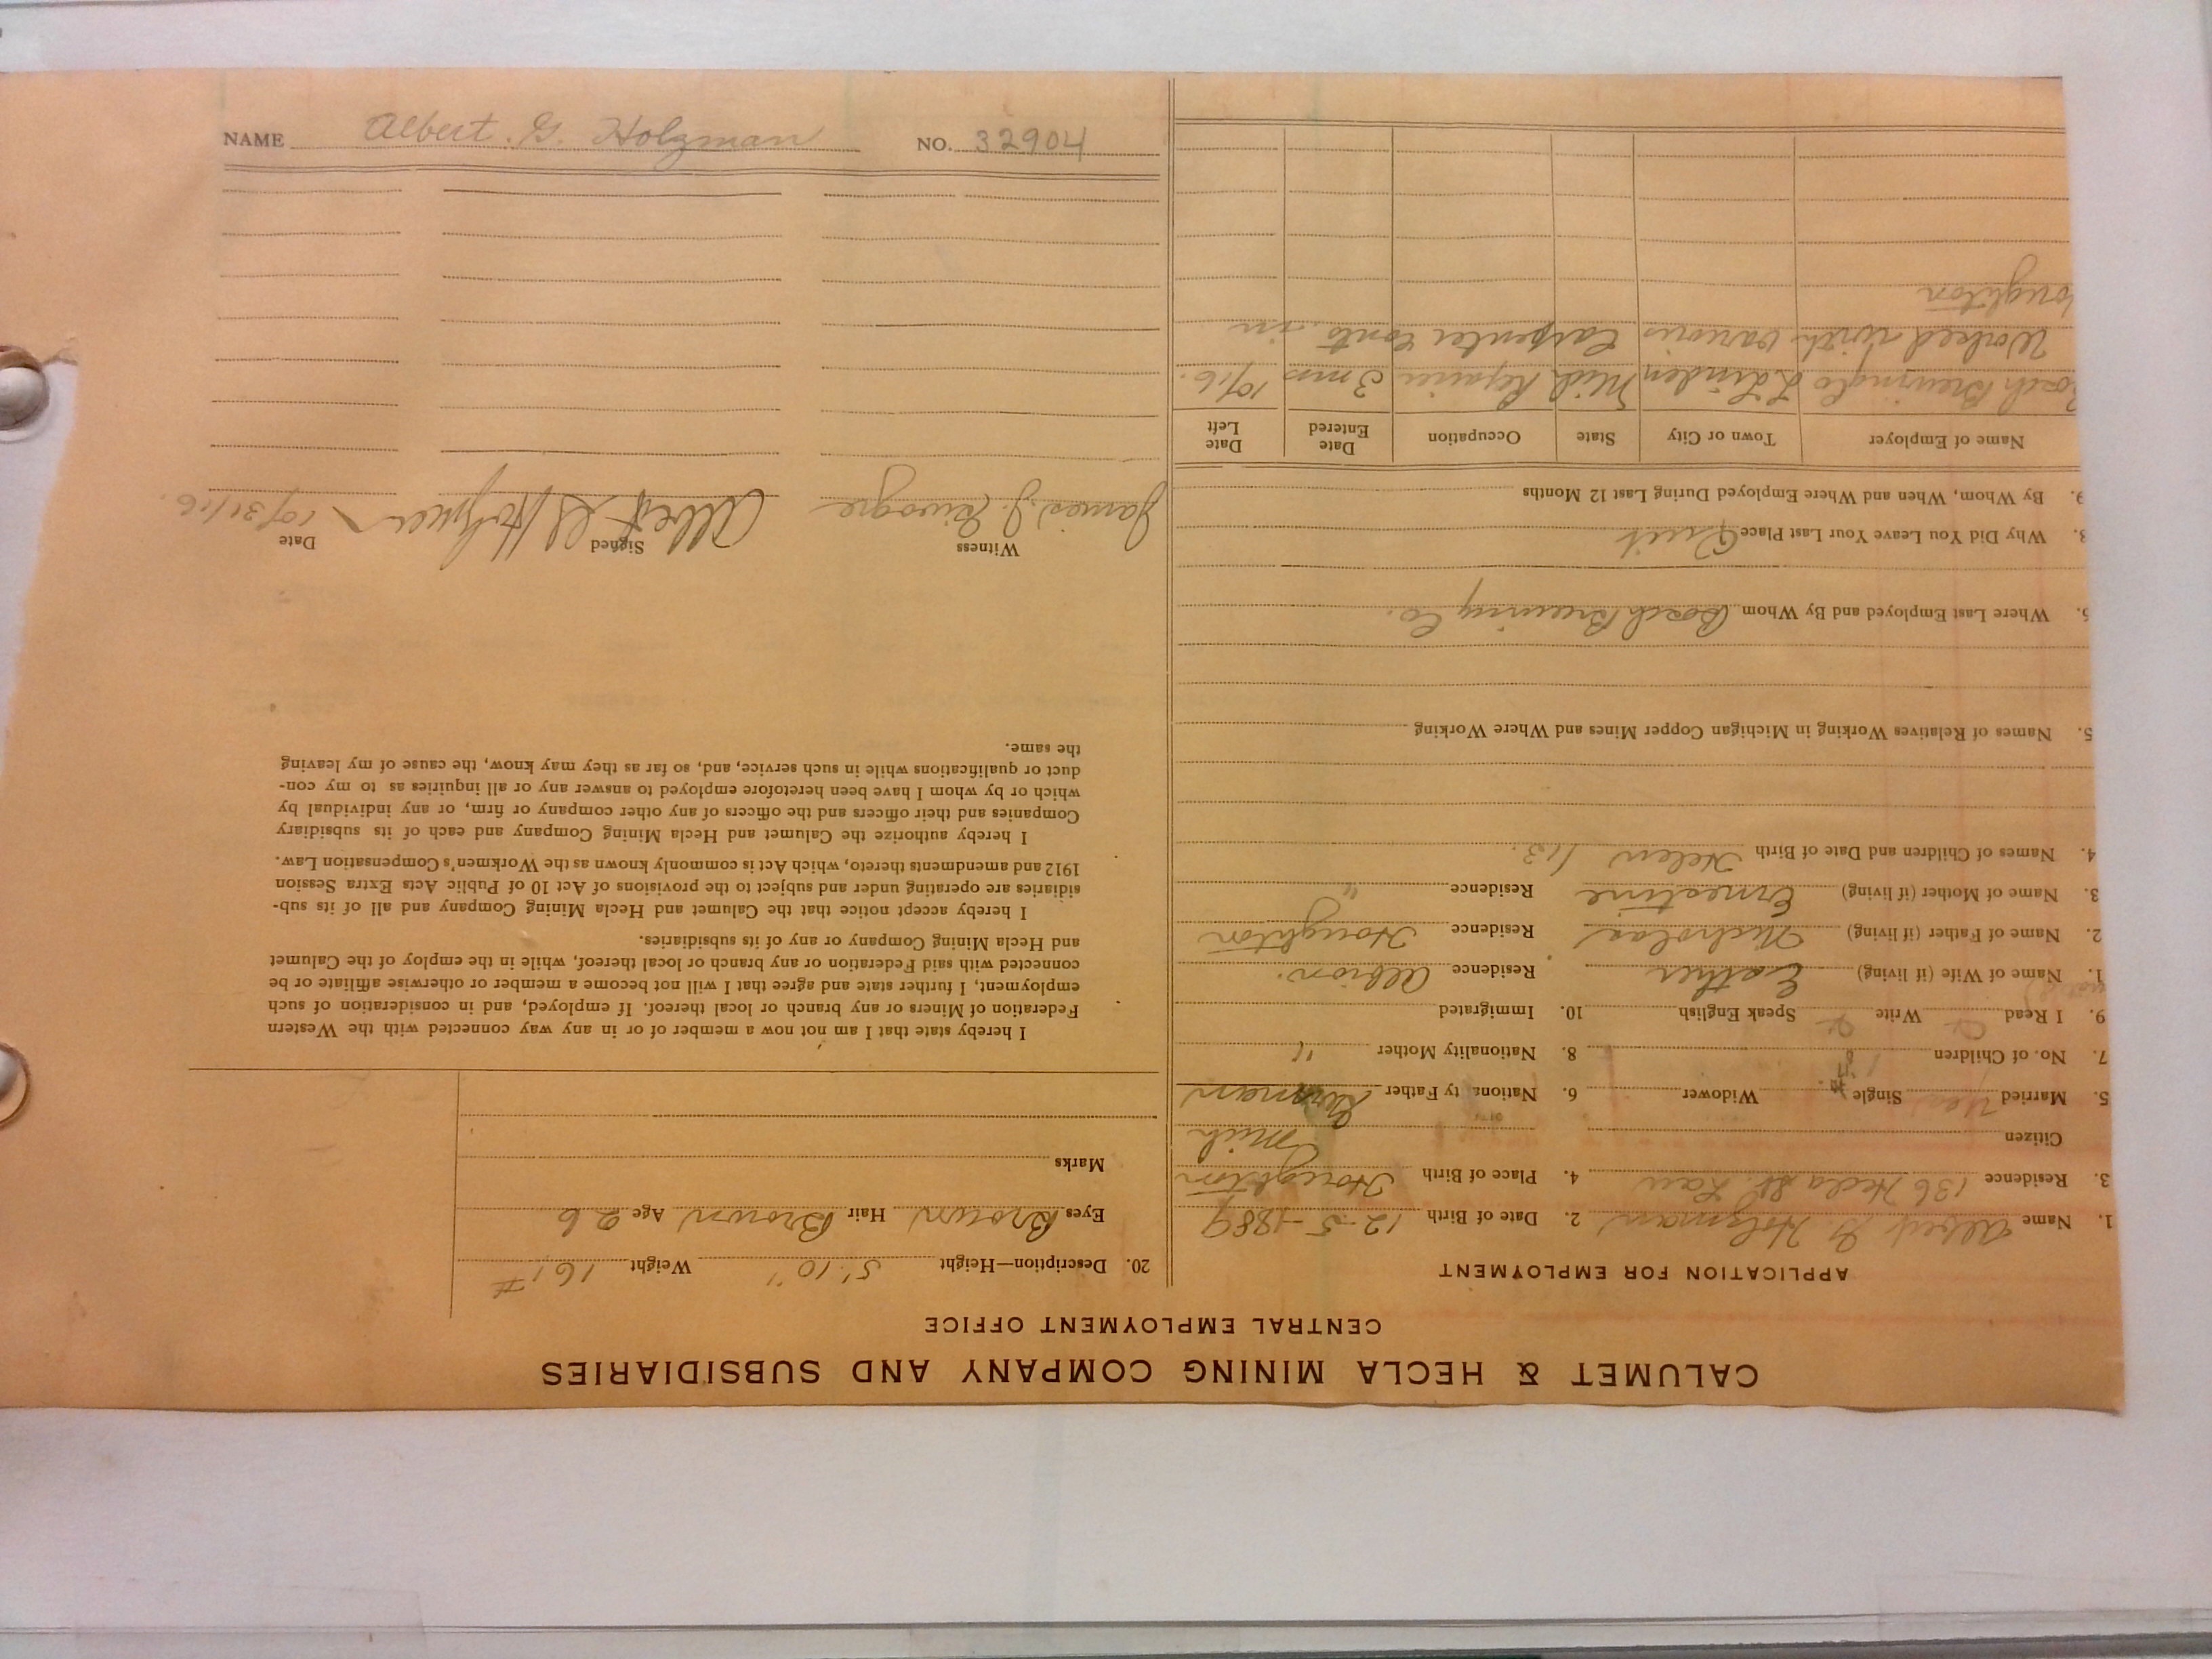 CALUMET & HECLA MINING COMPANY AND SUBSIDIARIES
CENTRAL EMPLOYMENT OFFICE
APPLICATION FOR EMPLOYMENT
1. Name Albert G. Holzman 2. Date of Birth 12-5-1889
3. Residence 136 Hecla St. Laur 4. Place of Birth Houghton
Citizen Mich
5. Married Yes Single Widower 6. Nationality Father German
7. No. of Children 1 8. Nationality Mother "
9. I Read Write Speak English 10. Immigrated
1. Name of Wife (if living) Esther Residence Albion.
2. Name of Father (if living) Nicholas Residence Houghton
3. Name of Mother (if living) Ernestine Residence "
4. Names of Children and Date of Birth Helen
5. Names of Relatives Working in Michigan Copper Mines and Where Working
Where Last Employed and By Whom Bosch Brewing Co.
Why Did You Leave Your Last Place Quit
9. By Whom, When and Where Employed During Last 12 Months
Name of Employer Town or City State Occupation Date Entered Date Left
Bosch Brewing Co L. Linden Mich Repairer 3 mos 10/16.
Worked with various Carpenter conts. in
oughton
20. Description—Height 5' 10" Weight 161 #
Eyes Brown Hair Brown Age 26
Marks
I hereby state that I am not now a member of or in any way connected with the Western
Federation of Miners or any branch or local thereof. If employed, and in consideration of such
employment, I further state and agree that I will not become a member or otherwise affiliate or be
connected with said Federation or any branch or local thereof, while in the employ of the Calumet
and Hecla Mining Company or any of its subsidiaries.
I hereby accept notice that the Calumet and Hecla Mining Company and all of its sub-
sidiaries are operating under and subject to the provisions of Act 10 of Public Acts Extra Session
1912 and amendments thereto, which Act is commonly known as the Workmen's Compensation Law.
I hereby authorize the Calumet and Hecla Mining Company and each of its subsidiary
Companies and their officers and the officers of any other company or firm, or any individual by
which or by whom I have been heretofore employed to answer any or all inquiries as to my con-
duct or qualifications while in such service, and, so far as they may know, the cause of my leaving
the same.
Witness Signed Date
James J. Albert G Holzman 10/31/16.
NAME Albert. G. Holzman NO. 32904